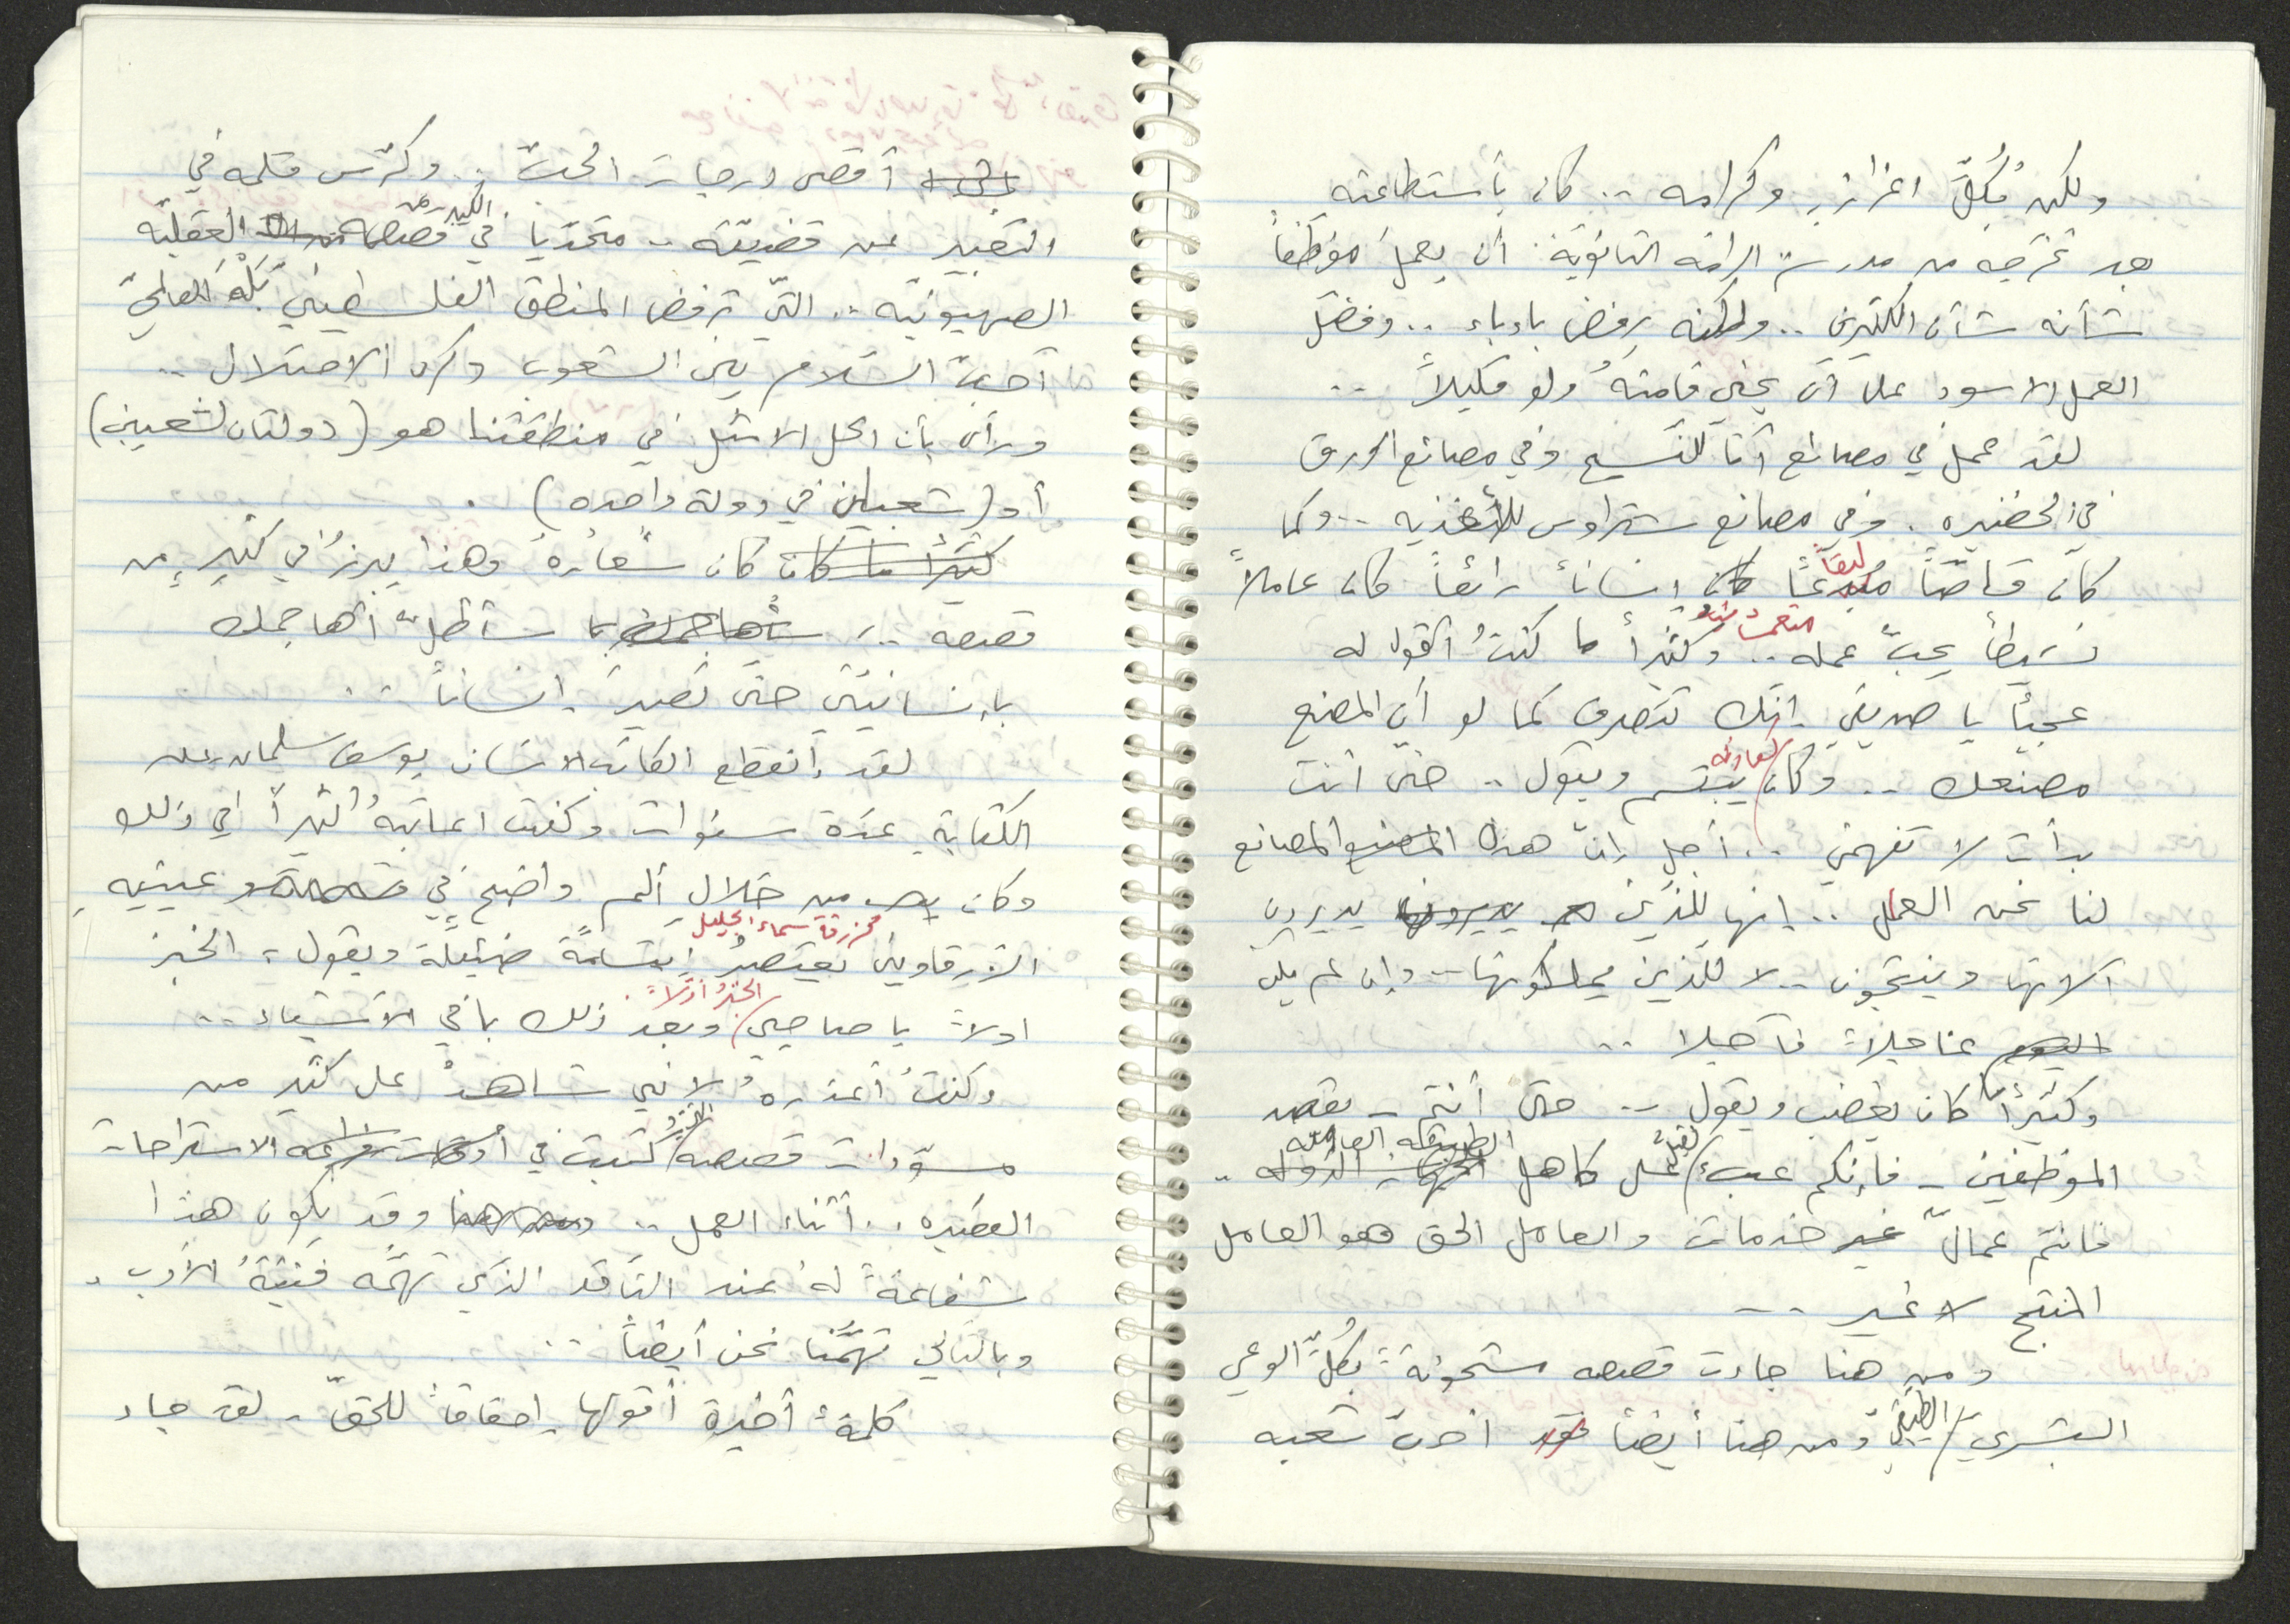 ولكن بكُلّ اعزازٍ وكرامه .. كان بأستطاعته
بعد تخرّجه من مدرسة الرامه الثانويّة أن يعملَ موظفاً
شأنه شأن الكثيرين .. ولكنه رفض بإباء .. وفضّل
العمل الاسود على أن يحني قامتهُ ولو قليلاً ..
لقد عمل في مصانع أتا للنسيج وفي مصانع الورق
في الخضيره . وفي مصانع شتراوس للأغذيه .. وكما
كان قاصّاً مبدعاً لبقاً كان انساناً رائعاً كان عاملاً
نشيطاً يحبّ عمله .. وكثيراً ما كنتُ أقول له
عجباً يا صديقي انّك تتصرف كما لو أن المصنع
مصنعك .. وكان كعادته يبتسم ويقول .. حتى أنت
بدأت لا تفهمني .. أجل إنّ هذه المصنع المصانع
لنا نحن العمال .. إنها للذين يديرونها يديرون
آلاتها وينتجون .. لا للذين يملكونها .. وإن لم يكن
اليوم عاجلاً فآجلا ..
وكثيراً ما كان يغضب ويقول .. حتى أنتم - يقصد
الموظفين - فإنكم عبءٌ ثقيلٌ على كاهل الطبقه العامله الدوله ..
فانتم عمالُ غير خدمات والعامل الحق هو العامل
المنتج لا غير ..
ومن هنا جاءت قصصه مشحونةً بكُلّ الوعي
البشريّ الطبقيّ ومن هنا أيضاً فقد احبّ شعبه
أقصى درجات الحبّ .. وكرّس قلمه في
التعبير عن قضيّته .. متحدّيا في الكثير من قصصه العقليّه
الصهيونيّه .. التي ترفض المنطق الفلسطيني بَلْهَ العالميّ
أحبّ السّلام بين الشعوب وكره الاحتلال ..
ورأى بأن الحل الامثل في منطقتنا هو (دولتان لشعبين)
أو (شعبين في دولة واحده) .
كثيراً ما كان كان شعارهُ وهذا يبرزُ في كثيرٍ من
قصصه .. سأهاجمك بـ سأظلّ أهاجمك
بإنسانيتي حتى تصير إنساناً ..
لقد إنقطع الكاتب الانسان يوسف سلمان عن
الكتابةِ عدّة سنوات وكنت اعاتبهُ كثيراً في ذلك
وكان من خلال ألمٍ واضحٍ في عينيه
الزرقاوين كزرقة سماء الجليل يعتصرُ إبتسامةً ضئيلة ويقول ، الخبز
اولاً يا صاحبي الخبزُ اوّلاً وبعد ذلك باقي الأشياء ..
وكنتُ أعذرهُ لانّي شاهدٌ على كثير من
مسوّدات قصصه التي كتبت في أوقات الاستراحات
القصيره .. أثناء العمل .. ومن هنا وقد يكون هذا
شفاعةً لهُ عند النّاقد الذي تهمّه فنيّةُ الأدب .
وبالتّالي تهمُّنا نحن أيضاً ..
كلمةً أخيرة أقولها إحقاقاً للحقّ - لقد جاء